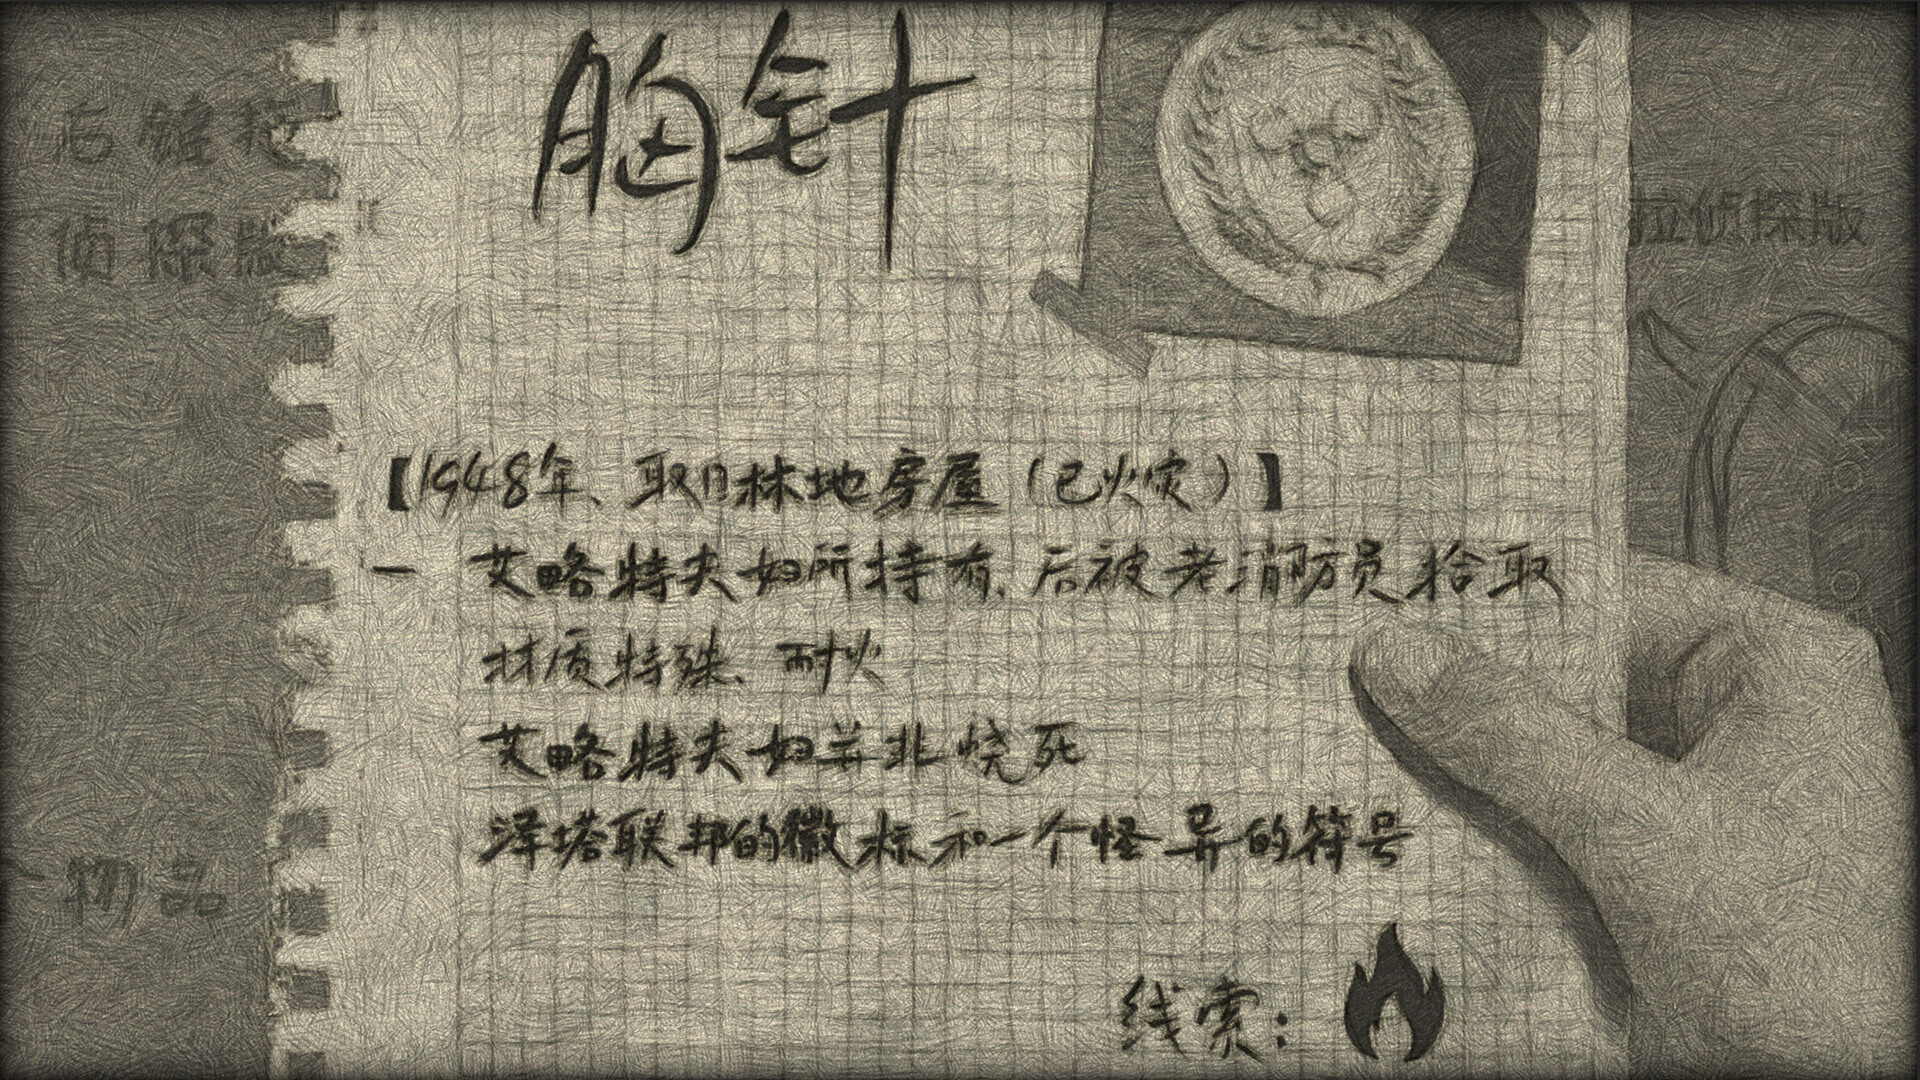 胸针
【1948年、取日林地房屋（已火灾）】
— 艾略特夫妇所持有、后被老消防员拾取
材质特殊、耐火
艾略特夫妇并非烧死
泽塔联邦的徽标和一个怪异的符号
线索：
侦探版
侦探版
物品